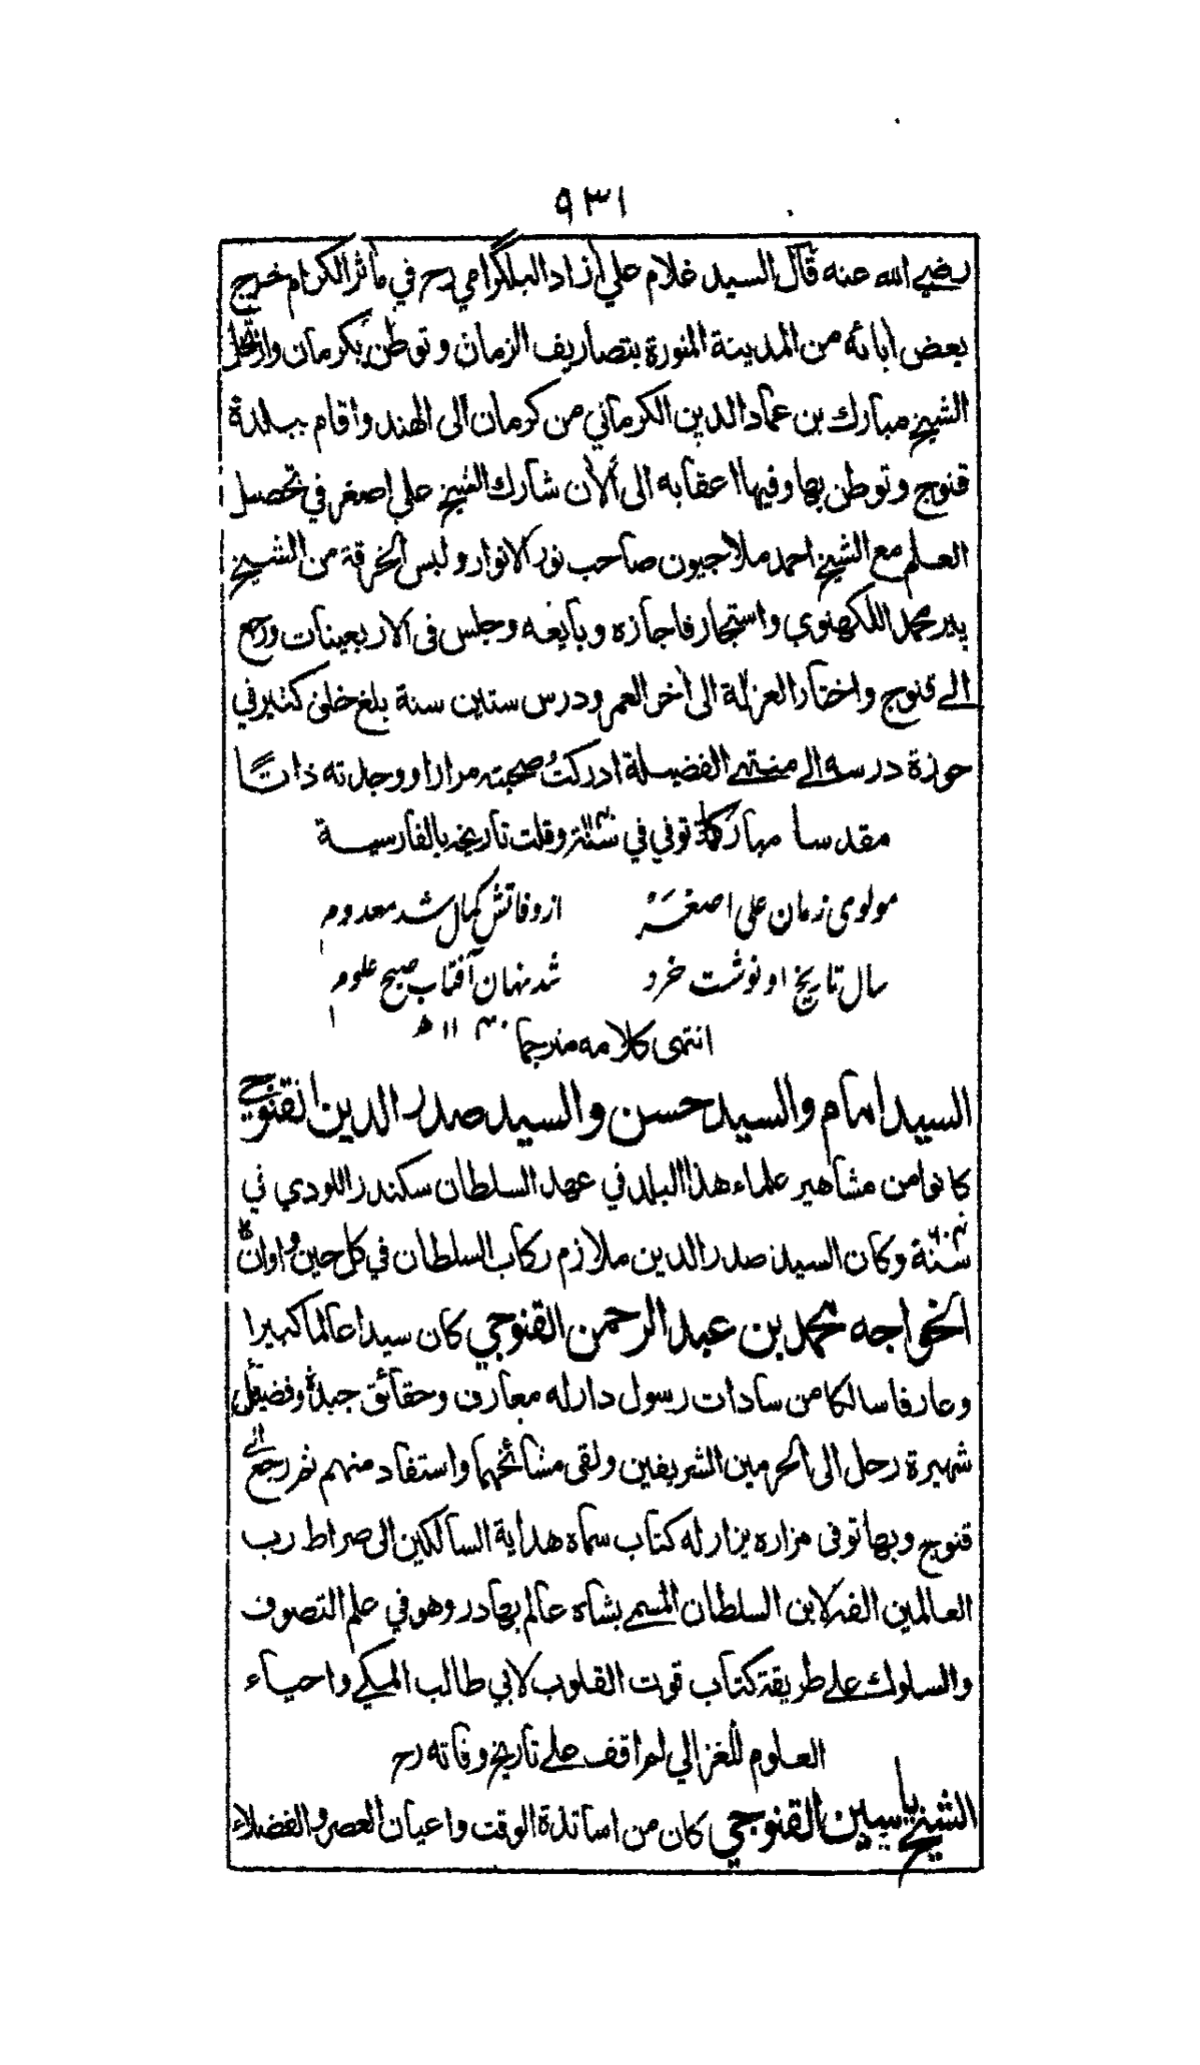 ٩٣١
رضي الله عنه قال السيد غلام علي ازاد البلگرامي رح في مآثر الكرام خرج
بعض ابائه من المدينة المنورة بتصاريف الزمان وتوطن بكرمان وارتحل
الشيخ مبارك بن عماد الدين الكرماني من كرمان الى الهند واقام ببلدة
قنوج وتوطن بها وفيها اعقابه الى الآن شارك الشيخ علي اصغر في تحصيل
العلم مع الشيخ احمد ملا جيون صاحب نور الانوار ولبس الخرقة من الشيخ
پير محمد اللكهنوي واستجاز فاجازه وبايعه وجلس في الاربعينات ورجع
الى قنوج واختار العزلة الى آخر العمر ودرس ستين سنة بلغ خلق كثير في
حوزة درسه الى منتهى الفضيلة ادركتُ صحبته مرارا ووجدته ذاتًا
مقدسا مباركا توفي في سنة وقلت تاريخه بالفارسية
مولوی زمان علی اصغر از وفاتش کمال شد معدوم
سال تاریخ او نوشت خرد شد نهان آفتاب صبح علوم
انتهى كلامه مترجما ١١٤٠ ه
السيد امام والسيد حسن والسيد صدر الدين القنوجي
كانوا من مشاهير علماء هذا البلد في عهد السلطان سكندر اللودي في
سنة وكان السيد صدر الدين ملازم ركاب السلطان في كل حين واوان
الخواجه محمد بن عبد الرحمن القنوجي كان سيدا عالما كبيرا
وعارفا سالكا من سادات رسول دار له معارف وحقائق جبلة وفضيلة
شهيرة رحل الى الحرمين الشريفين ولقي مشائخهما واستفاد منهم ثم رجع الى
قنوج وبها توفى مزاره يزار له كتاب سماه هداية السالكين الى صراط رب
العالمين الفه لابن السلطان المسمى بشاه عالم بهادر وهو في علم التصوف
والسلوك على طريقة كتاب قوت القلوب لابي طالب المكي واحياء
العلوم للغزالي لم اقف على تاريخ وفاته رح
الشيخ ياسين القنوجي كان من اساتذة الوقت واعيان العصر والفضلاء